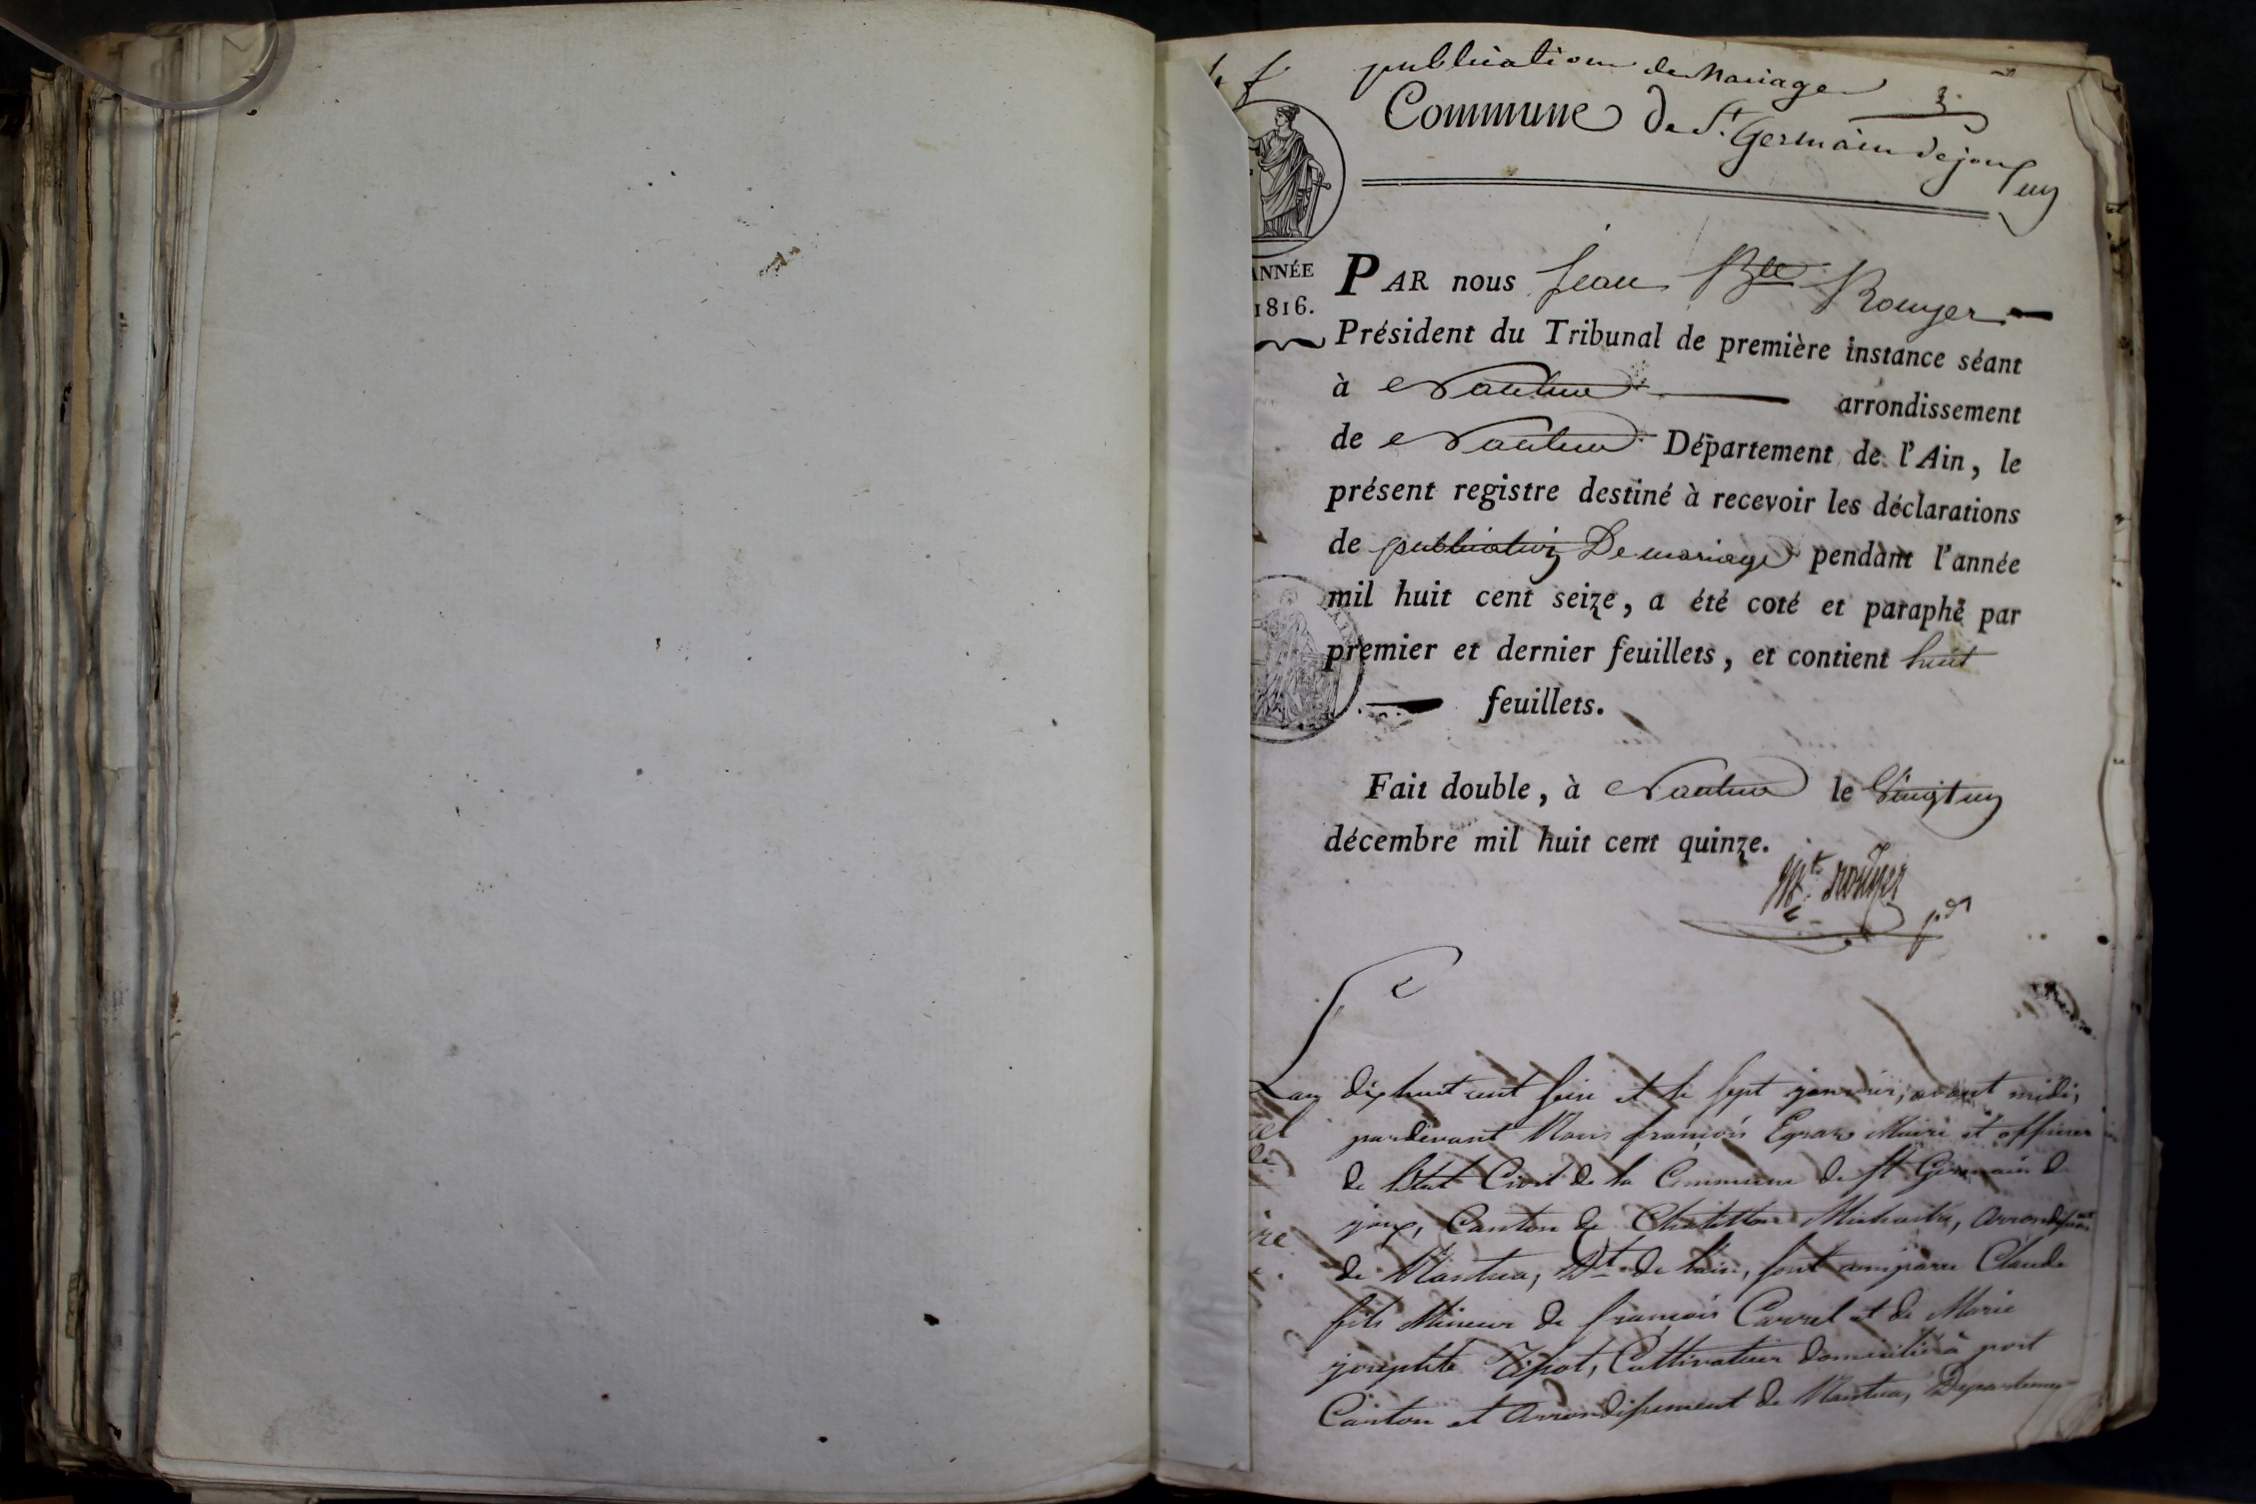 publication de Mariage 3.
Commune de St. Germain de joux
un
ANNÉE
1816.
PAR nous Jean Bte Rouyer
Président du Tribunal de première instance séant
à Nantua arrondissement
de Nantua Département de l'Ain, le
présent registre destiné à recevoir les déclarations
de publication De mariage pendant l'année
mil huit cent seize, a été coté et paraphé par
premier et dernier feuillets, et contient huit
feuillets.
Fait double, à Nantua le vingt un
décembre mil huit cent quinze.
Rouyer pdt
Lan dix huit cent seize et le sept janvier, avant midi,
pardevant Nous françois Egraz Maire et officier
de l'etat Civil de la Commune de St Germain de
joux, Canton de Chatillon Michaille, arrondissement
de Nantua, Dt de lain, sont comparu Claude
fils Mineur de françois Carrel et de Marie
josephte Tissot, Cultivateur domicilié à port
Canton et arrondissement de Nantua, Departement